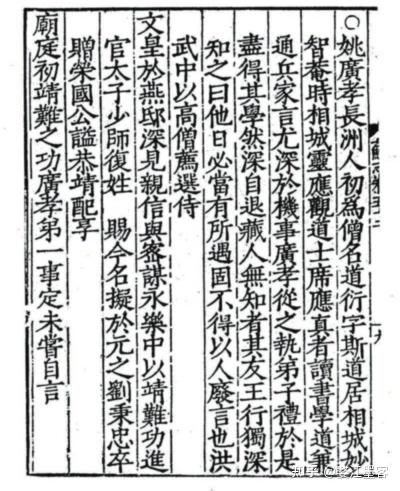 ○姚廣孝長洲人初爲僧名道衍字斯道居相城妙
智菴時相城靈應觀道士席應真者讀書學道兼
通兵家言尤深於機事廣孝從之執弟子禮於是
盡得其學然深自退藏人無知者其友王行獨深
知之曰他日必當有所遇固不得以人廢言也洪
武中以高僧薦選侍
文皇於燕邸深見親信與密謀永樂中以靖難功進
官太子少師復姓 賜今名擬於元之劉秉忠卒
贈榮國公謚恭靖配享
廟庭初靖難之功廣孝第一事定未嘗自言
知乎